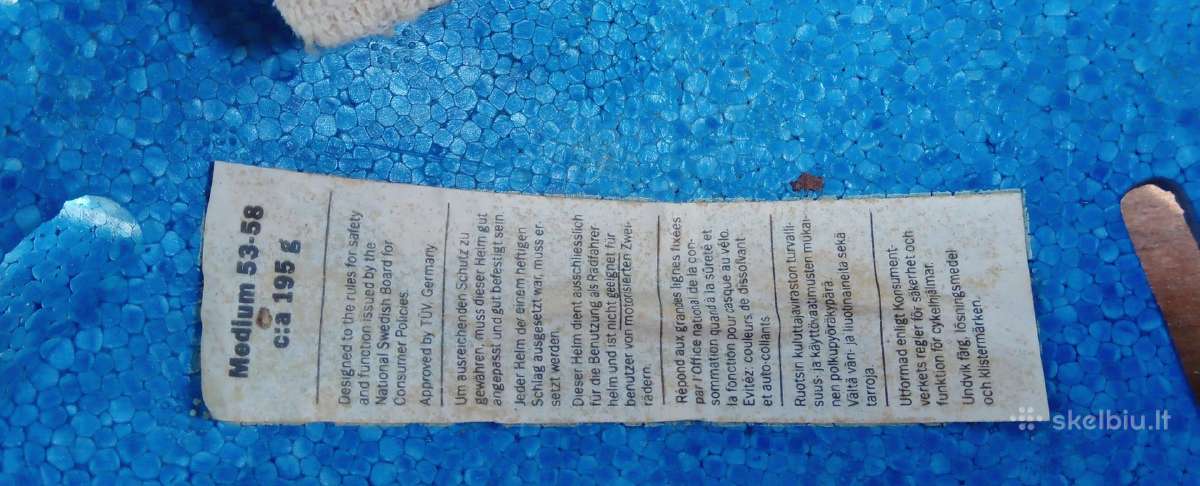 Medium 53-58
c:a 195 g
Designed to the rules for safety
and function issued by the
National Swedish Board for
Consumer Policies.
Approved by TÜV Germany
Um ausreichenden Schutz zu
gewähren, muss dieser Helm gut
angepasst und gut befestigt sein.
Jeder Helm der einem heftigen
Schlag ausgesetzt war, muss er-
setzt werden.
Dieser Helm dient ausschliesslich
für die Benutzung als Radfahrer
helm und ist nicht geeignet für
benutzer von motorisierten Zwei-
rädern.
Répond aux grandes lignes fixées
par l'Office national de la con-
sommation quand à la sûreté et
la fonction pour casque au vélo.
Evitéz: couleurs de dissolvant
et auto-collants
Ruotsin kuluttajaviraston turvalli-
suus- ja käyttövaatimusten mukai-
nen polkupyöräkypärä.
Vältä väri- ja liuotinaineita sekä
tarroja.
Utformad enligt Konsument-
verkets regler för säkerhet och
funktion för cykelhjälmar.
Undvik färg, lösningsmedel
och klistermärken.
skelbiu.lt